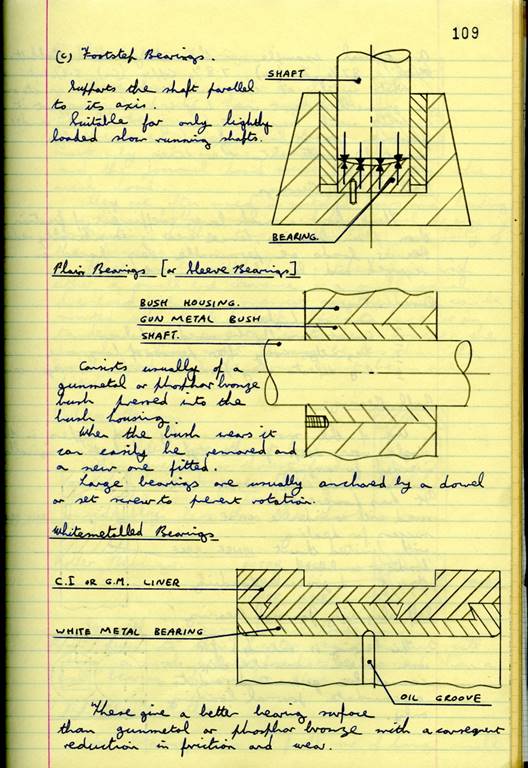 109
(c) Footstep Bearings.
SHAFT
Supports the shaft parallel
to its axis.
Suitable for only lightly
loaded slow running shafts.
BEARING.
Plain Bearings [or Sleeve Bearings]
BUSH HOUSING.
GUN METAL BUSH
SHAFT.
Consists usually of a
gunmetal or phosphor bronze
bush pressed into the
bush housing.
When the bush wears it
can easily be removed and
a new one fitted.
Large bearings are usually anchored by a dowel
or set screw to prevent rotation.
Whitemetalled Bearings
C.I OR G.M. LINER
WHITE METAL BEARING
OIL GROOVE
These give a better bearing surface
than gunmetal or phosphor bronze with a consequent
reduction in friction and wear.